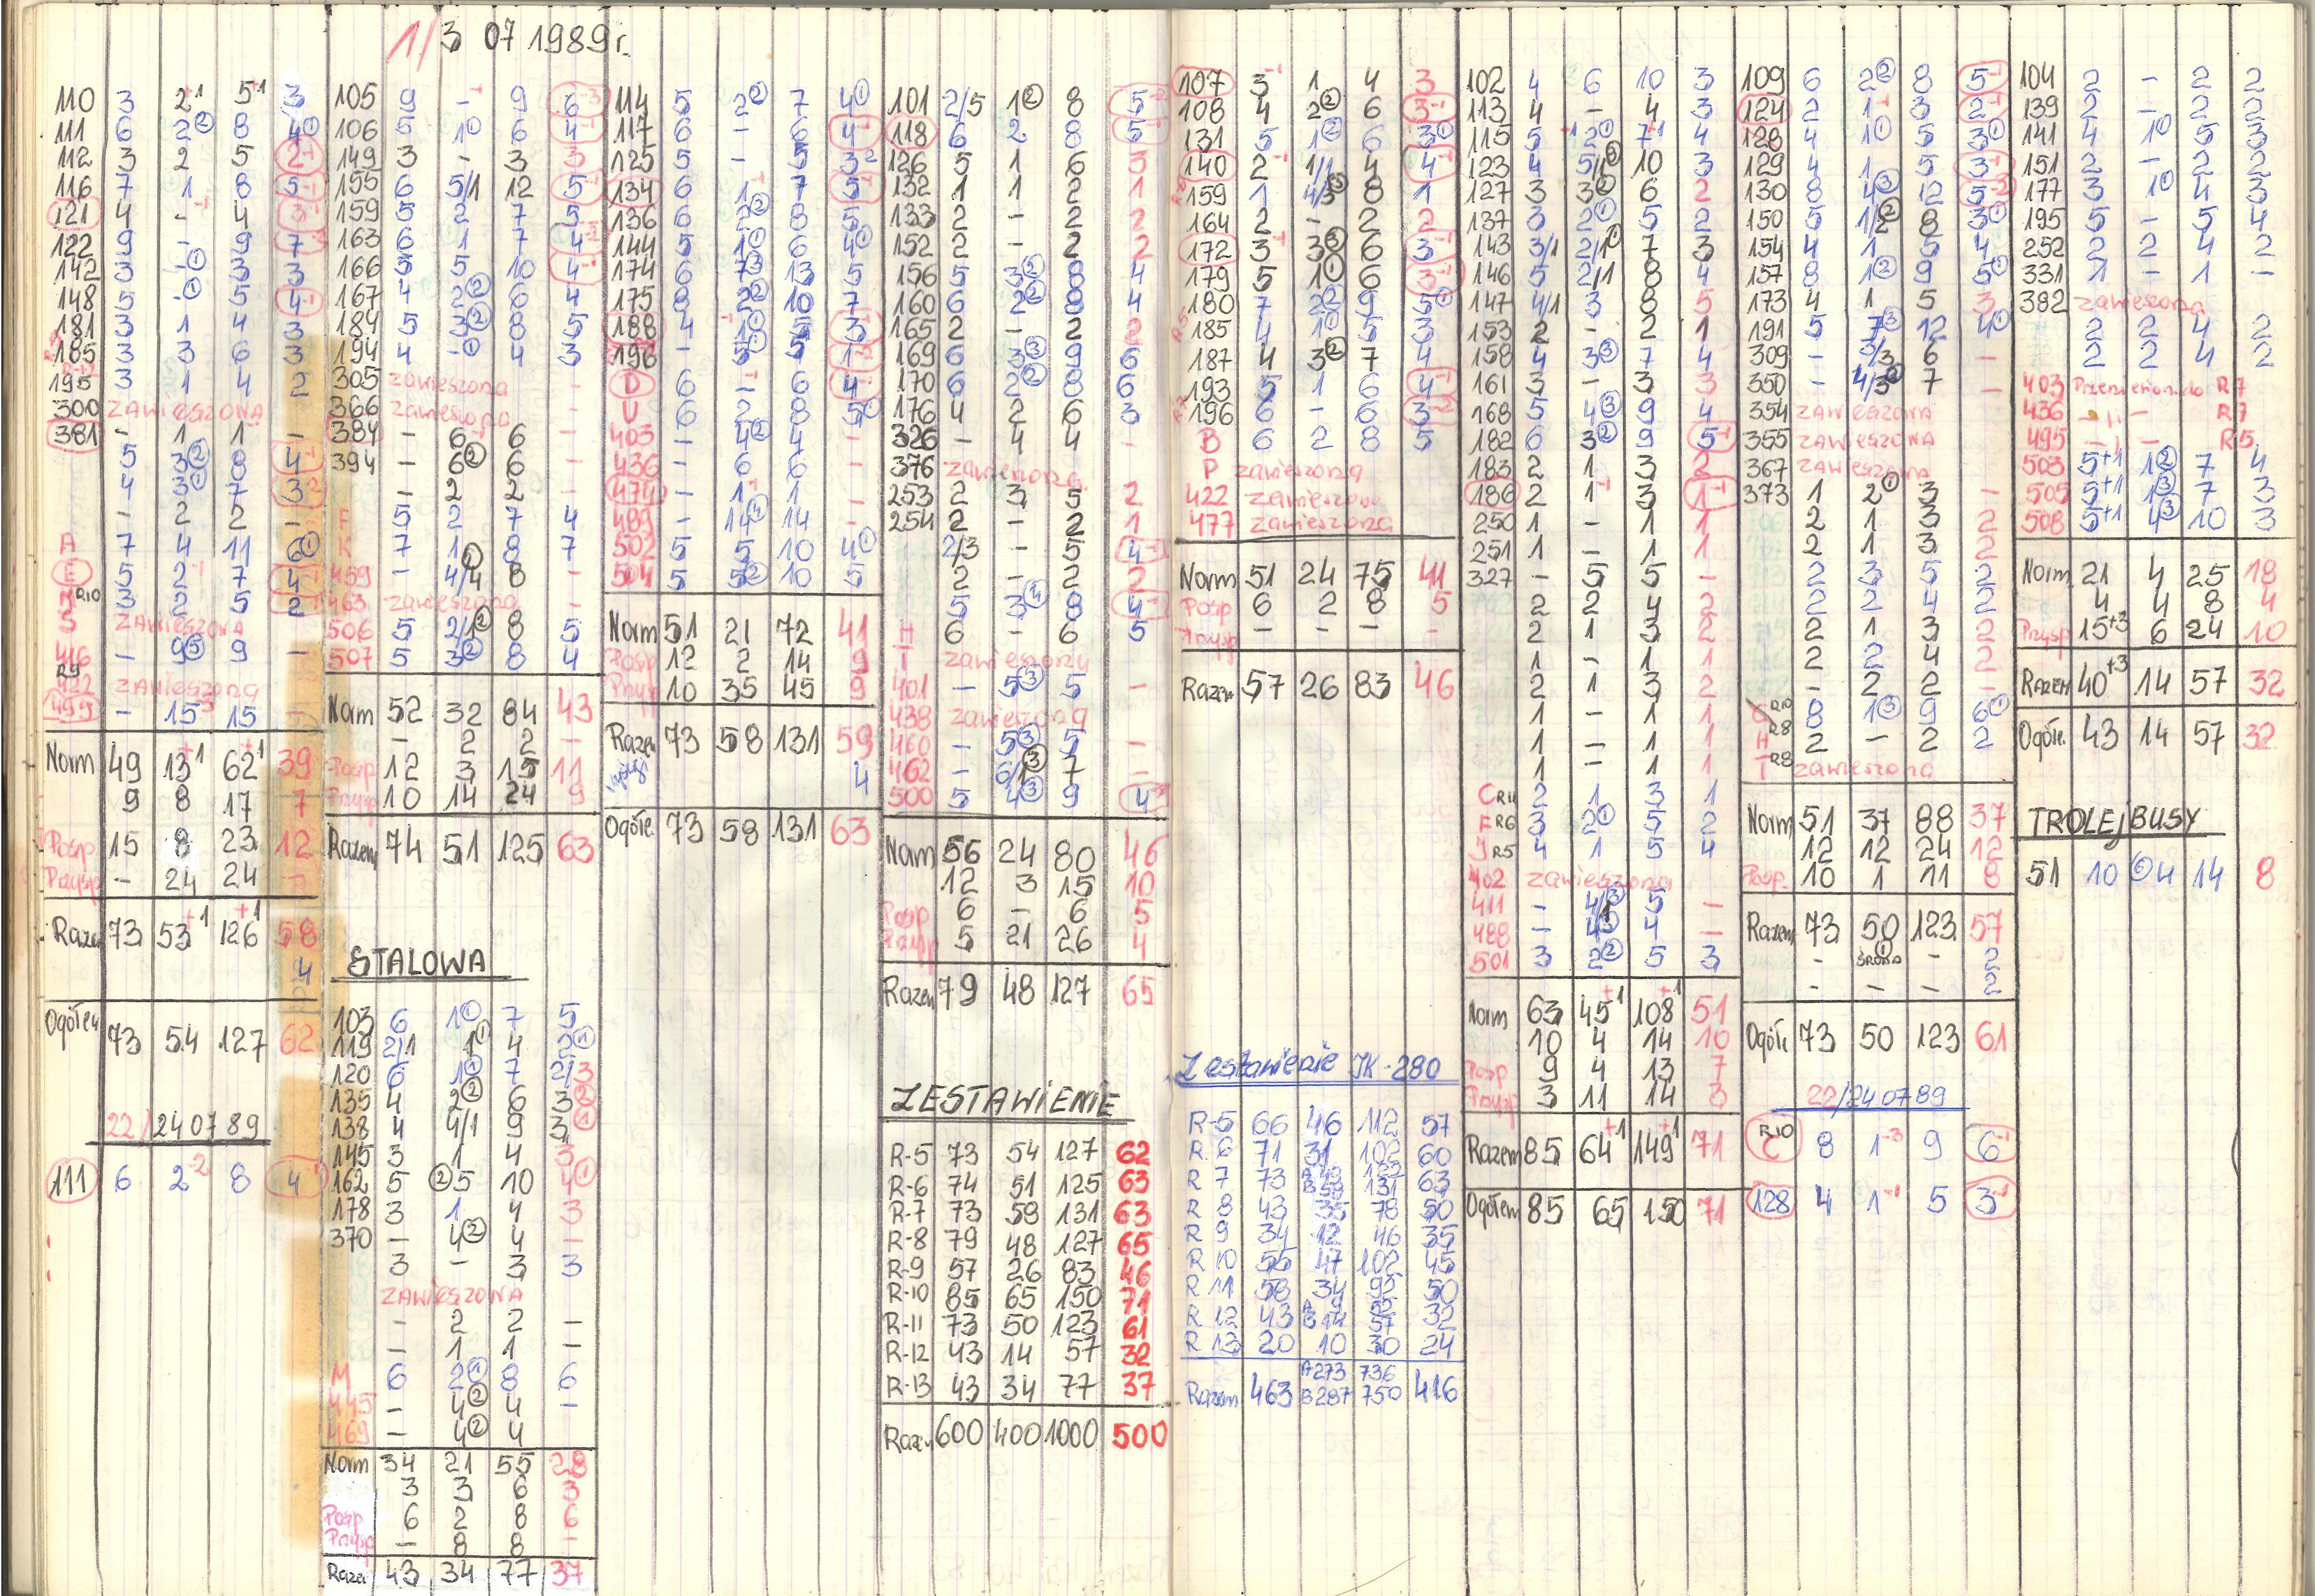 1/3 07 1989r.
110 3 2+1 5+1 3
111 6 2② 8 4①
112 3 2 5 2-1
116 7 1 8 5-1
121 4 - 4 3-1
122 9 - 9 7
142 3 -① 3 3
148 5 -① 5 4-1
181 3 1 4 3
185 3 3 6 3
195 3 1 4 2
300 ZAWIESZONA
381 - 1 1 -
5 3② 8 4-1
4 3① 7 3
- 2 2 -
A 7 4 11 6①
E 5 2 7 4
R10 3 2 5 2
S ZAWIESZONA
416 - 9⑤ 9 -
R9
422 ZAWIESZONA
495 - 15 15 -
Norm 49 13+1 62+1 39
9 8 17 7
Posp 15 8 23 12
Przysp - 24 24 -
Razem 73 53+1 126+1 58
4
Ogółem 73 54 127 62
22/24 07 89
111 6 2-2 8 4-1
105 9 - 9 6-3
106 5 1① 6 4-1
149 3 - 3 3
155 6 5/1 12 5-1
159 5 2 7 5
163 6 1 7 4-2
166 5 5 10 4-1
167 4 2② 6 4
184 5 3② 8 5
194 4 -① 4 3
305 zawieszona -
366 zawieszona -
384 - 6 6 -
394 - 6② 6 -
- 2 2 -
F 5 2 7 4
K 7 1① 8 7
459 - 4/4 8 -
463 zawieszona -
506 5 2/1② 8 5
507 5 3② 8 4
Norm 52 32 84 43
- 2 2 -
Posp 12 3 15 11
Przysp 10 14 24 9
Razem 74 51 125 63
STALOWA
103 6 1① 7 5
119 2/1 1① 4 2①
120 6 1① 7 2/3
135 4 2② 6 3②
138 4 4/1 9 3①
145 3 1 4 3
162 5 ②5 10 4①
178 3 1 4 3
370 - 4② 4 -
3 - 3 3
ZAWIESZONA
- 2 2 -
- 1 1 -
M 6 2① 8 6
445 - 4② 4 -
469 - 4② 4
Norm 34 21 55 28
3 3 6 3
Posp 6 2 8 6
Przysp - 8 8 -
Razem 43 34 77 37
114 5 2② 7 4①
117 6 - 6 4-1
125 5 - 5 3
134 6 1 7 5-1
136 6 2② 8 5
144 5 1① 6 4①
174 6 7③ 13 5
175 8 2② 10 7
188 4 1① 5 3
196 - 5① 5 1
D 6 - 6 4
U 6 2 8 5①
403 - 4② 4 -
436 - 6 6 -
474 - 1 1 -
489 - 14④ 14 -
502 5 5 10 4①
504 5 5② 10 5
Norm 51 21 72 41
Posp 12 2 14 9
Przysp 10 35 45 9
Razem 73 58 131 59
4
Ogółe. 73 58 131 63
101 2/5 1② 8 5-2
118 6 2 8 5-1
126 5 1 6 3
132 1 1 2 1
133 2 - 2 2
152 2 - 2 2
156 5 3② 8 4
160 6 2② 8 4
165 2 - 2 2
169 6 3③ 9 6
170 6 2② 8 6
176 4 2 6 3
326 - 4 4 -
376 zawieszona -
253 2 3 5 2
254 2 - 2 1
2/3 - 5 4
2 - 2 2
5 3② 8 4
H 6 - 6 5
T zawieszony
401 - 5③ 5 -
438 zawieszona
460 - 5③ 5 -
462 - 6/1③ 7 -
500 5 4③ 9 4
Norm 56 24 80 46
12 3 15 10
Posp 6 - 6 5
Przysp 5 21 26 4
Razem 79 48 127 65
ZESTAWIENIE
R-5 73 54 127 62
R-6 74 51 125 63
R-7 73 58 131 63
R-8 79 48 127 65
R-9 57 26 83 46
R-10 85 65 150 71
R-11 73 50 123 61
R-12 43 14 57 32
R-13 43 34 77 37
Razem 600 400 1000 500
107 3-1 1 4 3
108 4 2② 6 3-1
131 5 1② 6 3①
140 2 1/1 4 4-1
159 1 4/3③ 8 1
164 2 - 2 2
172 3-1 3③ 6 3-1
179 5 1① 6 3-1
180 7 2② 9 5①
185 4 1① 5 3
187 4 3② 7 4
193 5 1 6 4-1
196 6 - 6 3
B 6 2 8 5
P zawieszona
422 zawieszona
477 zawieszona
Norm 51 24 75 41
Posp 6 2 8 5
Przysp - - - -
Razem 57 26 83 46
Zestawienie IK-280
R-5 66 46 112 57
R 6 71 31 102 60
R 7 73 A 49 122 63
B 58 131
R 8 43 35 78 50
R 9 34 12 46 35
R 10 55 47 102 45
R 11 58 34 92 50
R 12 43 A 9 52 32
B 14 57
R 13 20 10 30 24
A273 736
Razem 463 B287 750 416
102 4 6 10 3
113 4 - 4 3
115 5 +1 2① 7+1 4
123 4 5/1② 10 3
127 3 3② 6 2
137 3 2① 5 2
143 3/1 2/1① 7 3
146 5 2/1 8 4
147 4/1 3 8 5
153 2 - 2 1
158 4 3③ 7 4
161 3 - 3 3
168 5 4③ 9 4
182 6 3② 9 5-1
183 2 1 3 2
186 2 1-1 3 1-1
250 1 - 1 1
251 1 - 1 1
327 - 5 5 -
2 2 4 2
2 1 3 2
1 - 1 1
2 1 3 2
1 - 1 1
1 - 1 1
1 - 1 1
C R11 2 1 3 1
F R6 3 2① 5 2
J R5 4 1 5 4
402 zawieszona
411 - 4/1③ 5 -
488 - 4③ 4 -
501 3 2② 5 3
Norm 63 45+1 108+1 51
10 4 14 10
Posp 9 4 13 7
Przysp 3 11 14 3
Razem 85 64+1 149+1 71
Ogółem 85 65 150 71
109 6 2② 8 5-1
124 2 1-1 3 2-1
128 4 1① 5 3①
129 4 1 5 3-1
130 8 4③ 12 5-2
150 5 1/2② 8 3①
154 4 1 5 4
157 8 1② 9 5①
173 4 1 5 3
191 5 7③ 12 4①
309 - 3/3 6 -
350 - 4/3① 7 -
354 ZAWIESZONA
355 ZAWIESZONA
367 ZAWIESZONA
373 1 2① 3 -
2 1 3 2
2 1 3 2
2 3 5 2
2 2 4 2
2 1 3 2
2 2 4 2
- 2 2 -
C R10 8 1③ 9 6①
H R8 2 - 2 2
T R8 zawieszona
Norm 51 37 88 37
12 12 24 12
Posp. 10 1 11 8
Razem 73 50 123 57
- ① ŚRODA - 2
- - - 2
Ogółe 73 50 123 61
22/24 07 89
R10 C 8 1-3 9 6-1
128 4 1-1 5 3-1
104 2 - 2 2
139 2 - 2 2
141 4 1① 5 3
151 2 - 2 2
177 3 1① 4 3
195 5 - 5 4
252 2 2 4 2
331 1 - 1 -
382 zawieszona
2 2 4 2
2 2 4 2
403 Przeniesiona do R7
436 - 11 - R7
495 - 11 - R5
503 5+1 1② 7 4
505 5+1 1③ 7 3
508 5+1 4③ 10 3
Norm 21 4 25 18
4 4 8 4
Przysp 15+3 6 24 10
Razem 40+3 14 57 32
Ogółe. 43 14 57 32
TROLEJBUSY
51 10 ①4 14 8